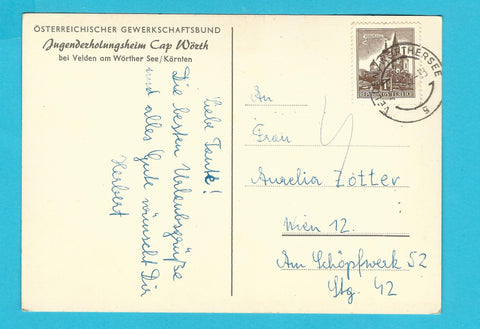 ÖSTERREICHISCHER GEWERKSCHAFTSBUND
Jugenderholungsheim Cap Wörth
bei Velden am Wörther See/Kärnten
Liebe Tante!
Die besten Urlaubsgrüße
und alles Gute wünscht Dir
Herbert
An
Frau
Aurelia Zotter
Wien 12.
Am Schöpfwerk 52
Stg. 42
WÖRTHERSEE
REPUBLIK ÖSTERREICH